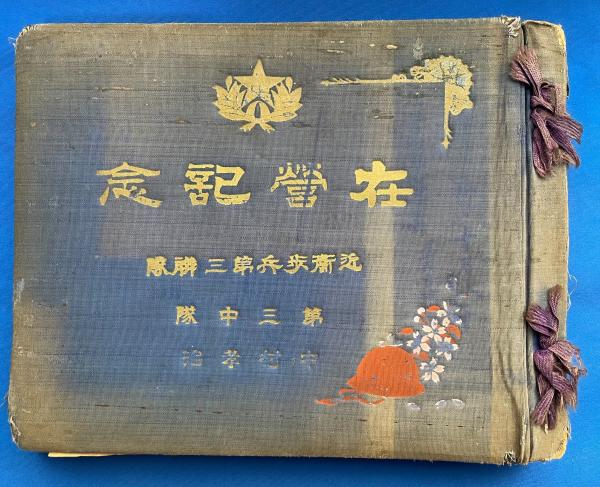 在營記念
近衞歩兵第三聯隊
第三中隊
中村孝